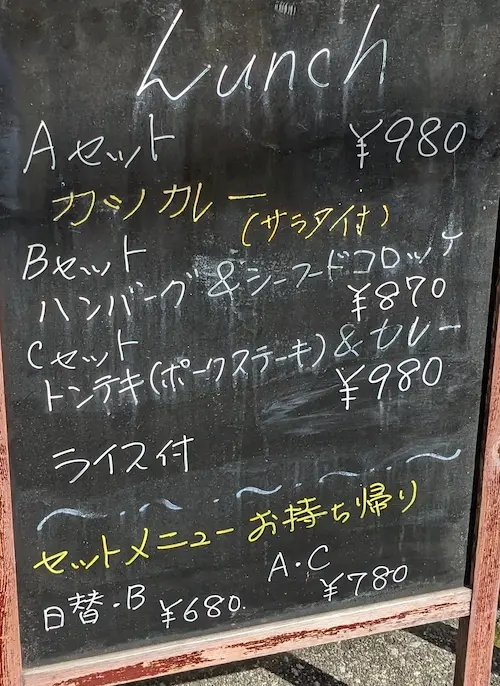 Lunch
Aセット ¥980
カツカレー
(サラダ付)
Bセット
ハンバーグ&シーフードコロッケ
¥870
Cセット
トンテキ(ポークステーキ)&カレー
¥980
ライス付
セットメニューお持ち帰り
日替・B ¥680. A・C ¥780